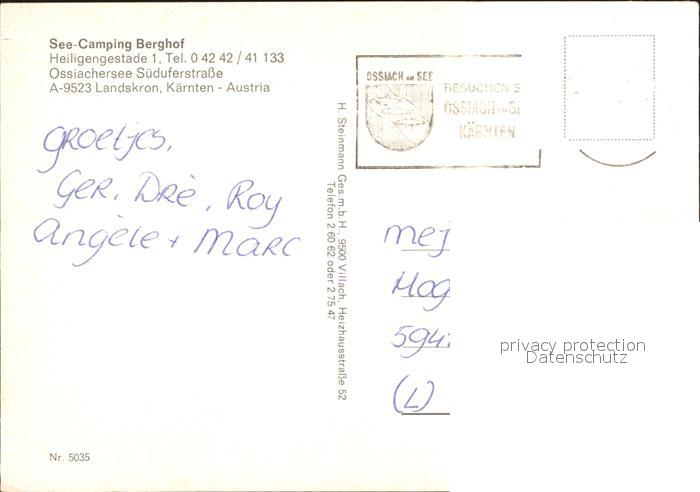 See-Camping Berghof
Heiligengestade 1, Tel. 0 42 42 / 41 133
Ossiachersee Süduferstraße
A-9523 Landskron, Kärnten - Austria
groetjes,
Ger, Drè, Roy
Angèle + Marc
Nr. 5035
H. Steinmann Ges.m.b.H., 9500 Villach, Heizhausstraße 52
Telefon 2 60 62 oder 2 75 47
OSSIACH AM SEE
BESUCHEN S
OSSIACH AM SE
KÄRNTEN
mej
Hog
594
(L)
privacy protection
Datenschutz